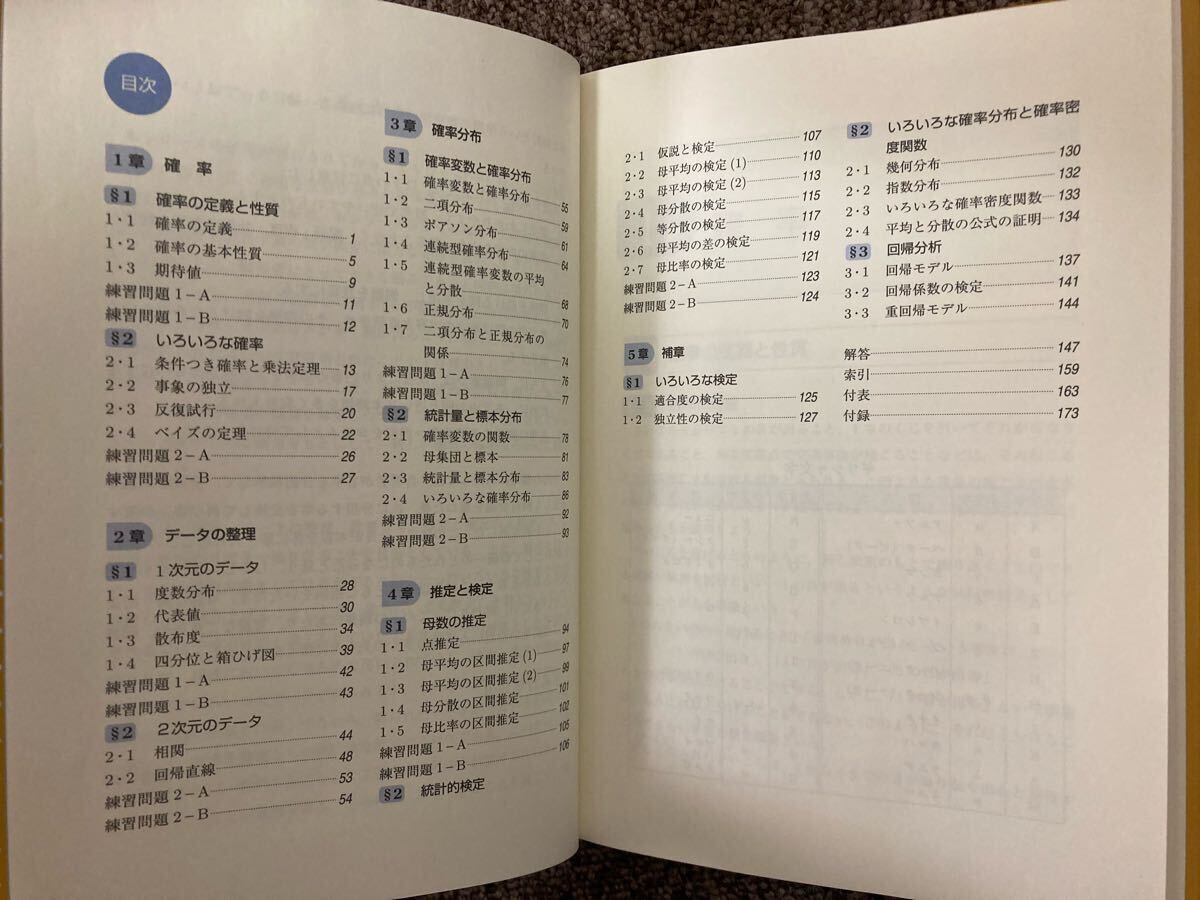 目次
1章 確 率
§1 確率の定義と性質
1・1 確率の定義 1
1・2 確率の基本性質 5
1・3 期待値 9
練習問題 1−A 11
練習問題 1−B 12
§2 いろいろな確率
2・1 条件つき確率と乗法定理 13
2・2 事象の独立 17
2・3 反復試行 20
2・4 ベイズの定理 22
練習問題 2−A 26
練習問題 2−B 27
2章 データの整理
§1 1次元のデータ
1・1 度数分布 28
1・2 代表値 30
1・3 散布度 34
1・4 四分位と箱ひげ図 39
練習問題 1−A 42
練習問題 1−B 43
§2 2次元のデータ
2・1 相関 44
2・2 回帰直線 48
練習問題 2−A 53
練習問題 2−B 54
3章 確率分布
§1 確率変数と確率分布
1・1 確率変数と確率分布 55
1・2 二項分布 59
1・3 ポアソン分布 61
1・4 連続型確率分布 64
1・5 連続型確率変数の平均
と分散 68
1・6 正規分布 70
1・7 二項分布と正規分布の
関係 74
練習問題 1−A 76
練習問題 1−B 77
§2 統計量と標本分布
2・1 確率変数の関数 78
2・2 母集団と標本 81
2・3 統計量と標本分布 83
2・4 いろいろな確率分布 86
練習問題 2−A 92
練習問題 2−B 93
4章 推定と検定
§1 母数の推定
1・1 点推定 94
1・2 母平均の区間推定 (1) 97
1・3 母平均の区間推定 (2) 99
1・4 母分散の区間推定 101
1・5 母比率の区間推定 102
練習問題 1−A 105
練習問題 1−B 106
§2 統計的検定
2・1 仮説と検定 107
2・2 母平均の検定 (1) 110
2・3 母平均の検定 (2) 113
2・4 母分散の検定 115
2・5 等分散の検定 117
2・6 母平均の差の検定 119
2・7 母比率の検定 121
練習問題 2−A 123
練習問題 2−B 124
5章 補章
§1 いろいろな検定
1・1 適合度の検定 125
1・2 独立性の検定 127
§2 いろいろな確率分布と確率密
度関数
2・1 幾何分布 130
2・2 指数分布 132
2・3 いろいろな確率密度関数 133
2・4 平均と分散の公式の証明 134
§3 回帰分析
3・1 回帰モデル 137
3・2 回帰係数の検定 141
3・3 重回帰モデル 144
解答 147
索引 159
付表 163
付録 173